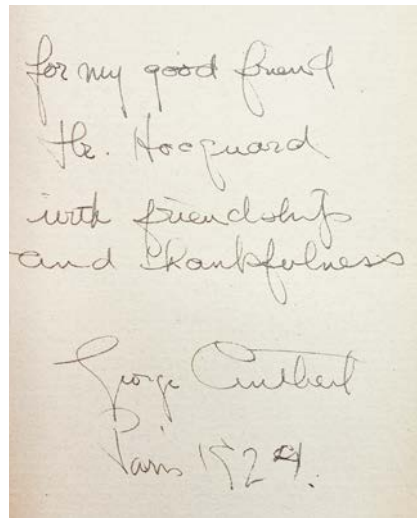 for my good friend
Th. Hocquard
with friendship
and thankfulness
George Cuthbert
Paris 1929.